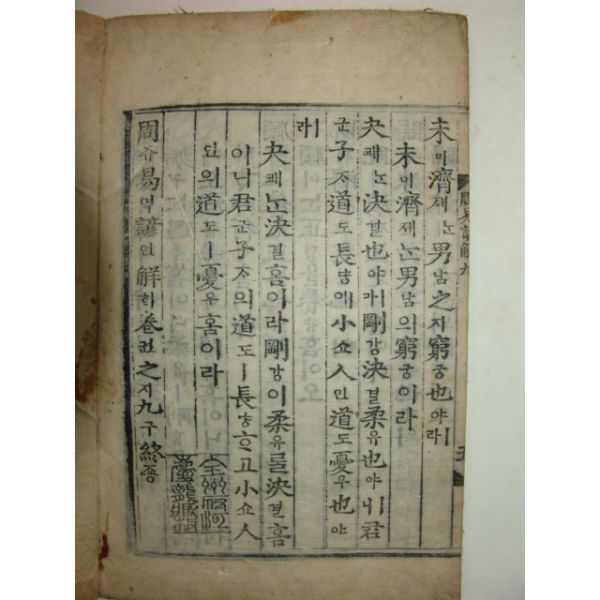 未미濟졔ᄂᆞᆫ男남之지窮궁也야ㅣ라
未미濟졔ᄂᆞᆫ男남의窮궁이라
夬쾌ᄂᆞᆫ決결也야ㅣ라剛강決결柔유也야ㅣ니君
군子ᄌᆞ道도ㅣ長댱小쇼人인道도ㅣ憂우也야
ㅣ라
夬쾌ᄂᆞᆫ決결홈이라剛강이柔유를決결홈
이니君군子ᄌᆞ의道도ㅣ長댱ᄒᆞ고小쇼人
인의道도ㅣ憂우홈이라
周쥬易역諺언解ᄒᆡ卷권之지九구終죵
全州府河
慶龍藏板
周易諺解九